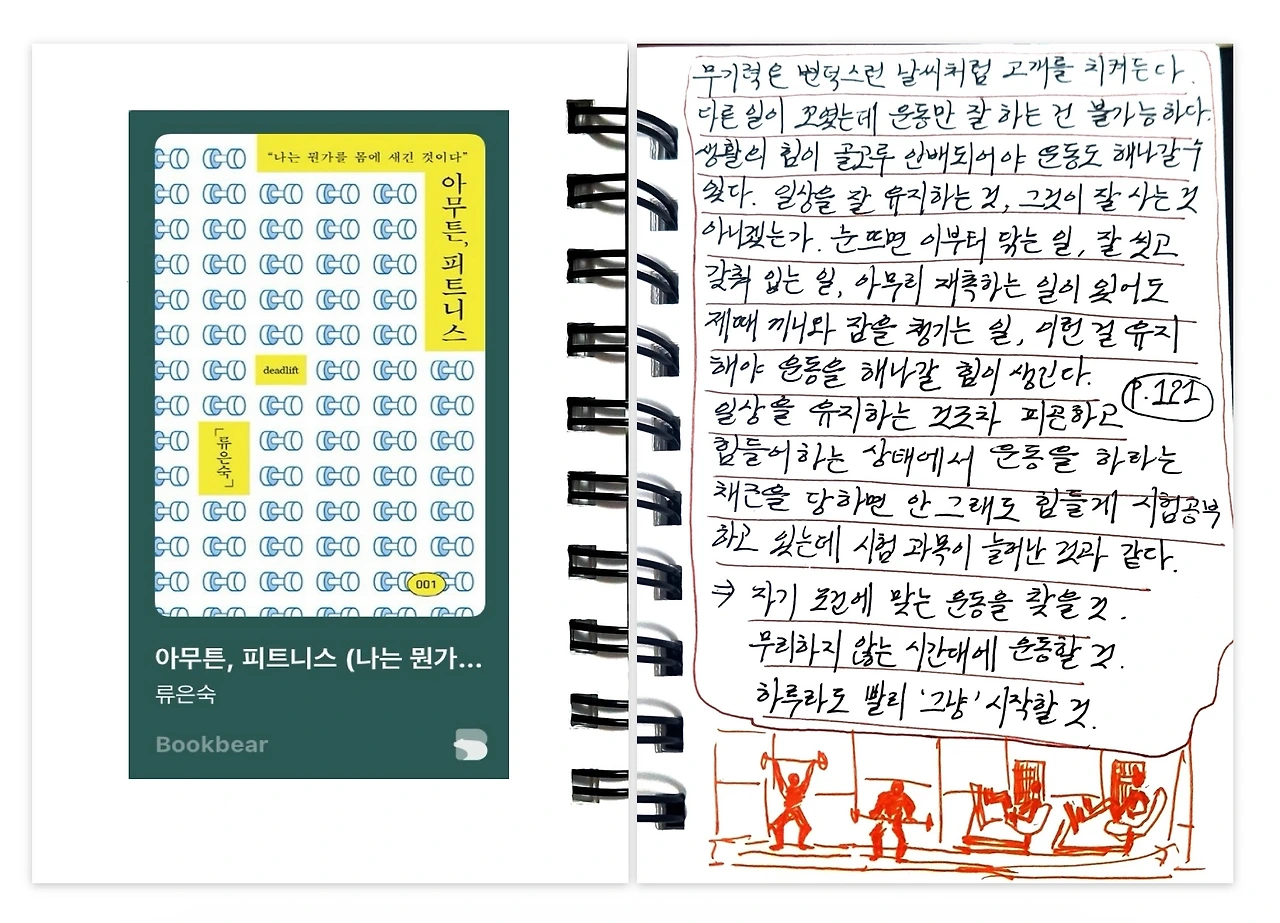 “나는 뭔가를 몸에 새긴 것이다”
아무튼, 피트니스
deadlift
「류은숙」
001
아무튼, 피트니스 (나는 뭔가...
류은숙
Bookbear
무기력은 변덕스런 날씨처럼 고개를 치켜든다.
다른 일이 꼬였는데 운동만 잘 하는 건 불가능하다.
생활의 힘이 골고루 안배되어야 운동도 해나갈 수
있다. 일상을 잘 유지하는 것, 그것이 잘 사는 것
아니겠는가. 눈 뜨면 이부터 닦는 일, 잘 씻고
갖춰 입는 일, 아무리 재촉하는 일이 있어도
제때 끼니와 잠을 챙기는 일, 이런 걸 유지
해야 운동을 해나갈 힘이 생긴다.
P.121
일상을 유지하는 것조차 피곤하고
힘들어하는 상태에서 운동을 하라는
채근을 당하면 안 그래도 힘들게 시험공부
하고 있는데 시험 과목이 늘어난 것과 같다.
⇒ 자기 조건에 맞는 운동을 찾을 것.
무리하지 않는 시간대에 운동할 것.
하루라도 빨리 '그냥' 시작할 것.